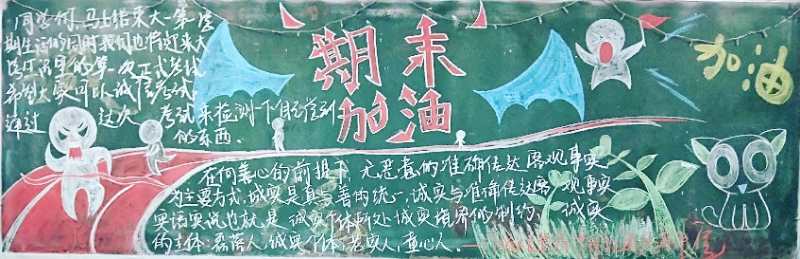 同学们,马上结束大一第一学
期生活的同时我们也将迎来大
学生活里的第一次正式考试
希望大家可以诚信考试
通过 这次 考试来检测一下自己学到
的东西.
期末
加油
加油
在何善心的前提下,无恶意的准确传达客观事实
为主要方式.诚实是真与善的统一,诚实与准确传达客 观事实
实话实说也就是 诚实 个体 诚实 境界的制约. 诚实
的主体:磊落人,诚实个体:老实人,童心人.